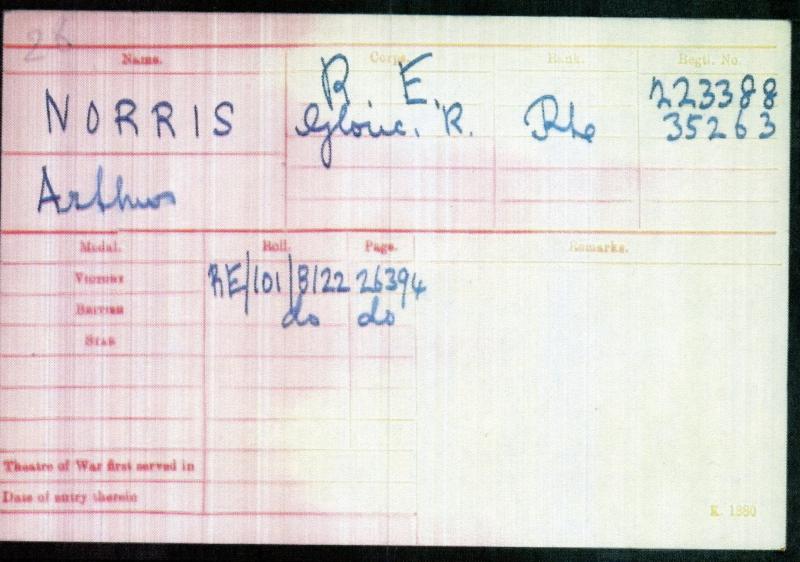 26
Name. Corps. Rank. Regtl. No.
R E. 223388
NORRIS Glouc. R. Pte 35263
Arthur
Medal. Roll. Page. Remarks.
Victory RE/101/B122 26394
British do do
Star
Theatre of War first served in
Date of entry therein
K. 1380